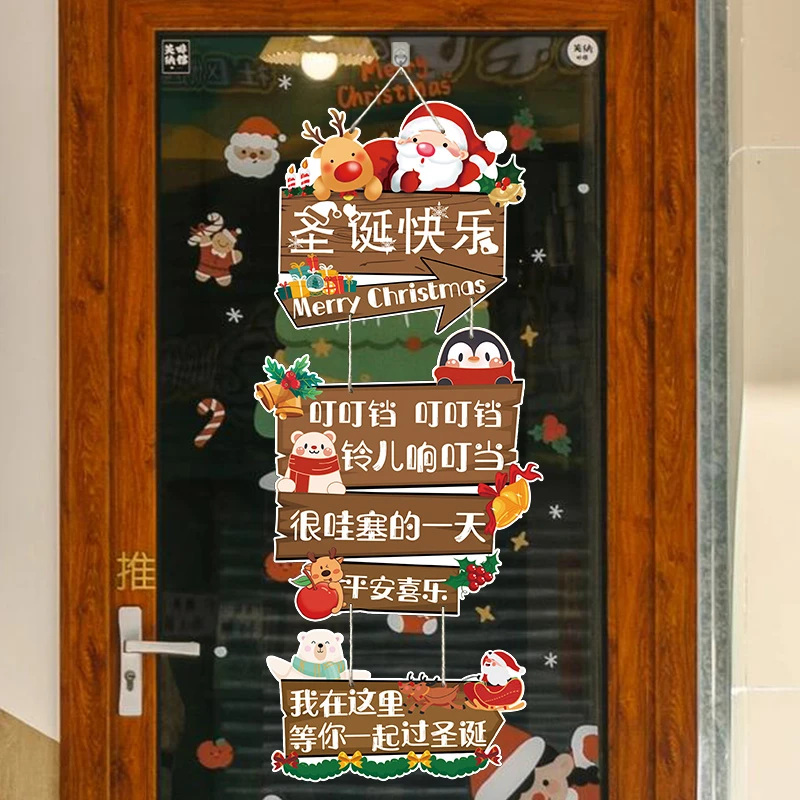 笑纳
啡馆
笑纳
啡馆
Merry
Christmas
圣诞快乐
Merry Christmas
叮叮铛 叮叮铛
铃儿响叮当
很哇塞的一天
平安喜乐
推
我在这里
等你一起过圣诞